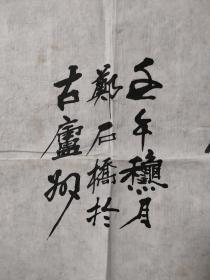 壬午穐月
鄭石橋於
古廬州